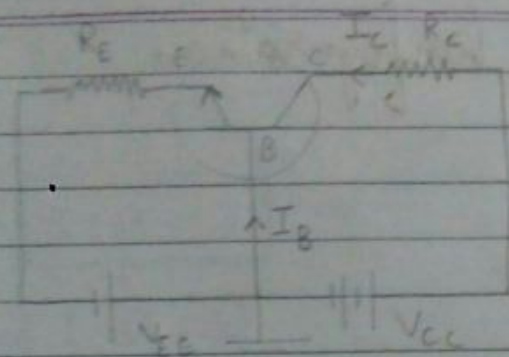 R_E E C I_C R_C
B
I_B
V_EE V_CC